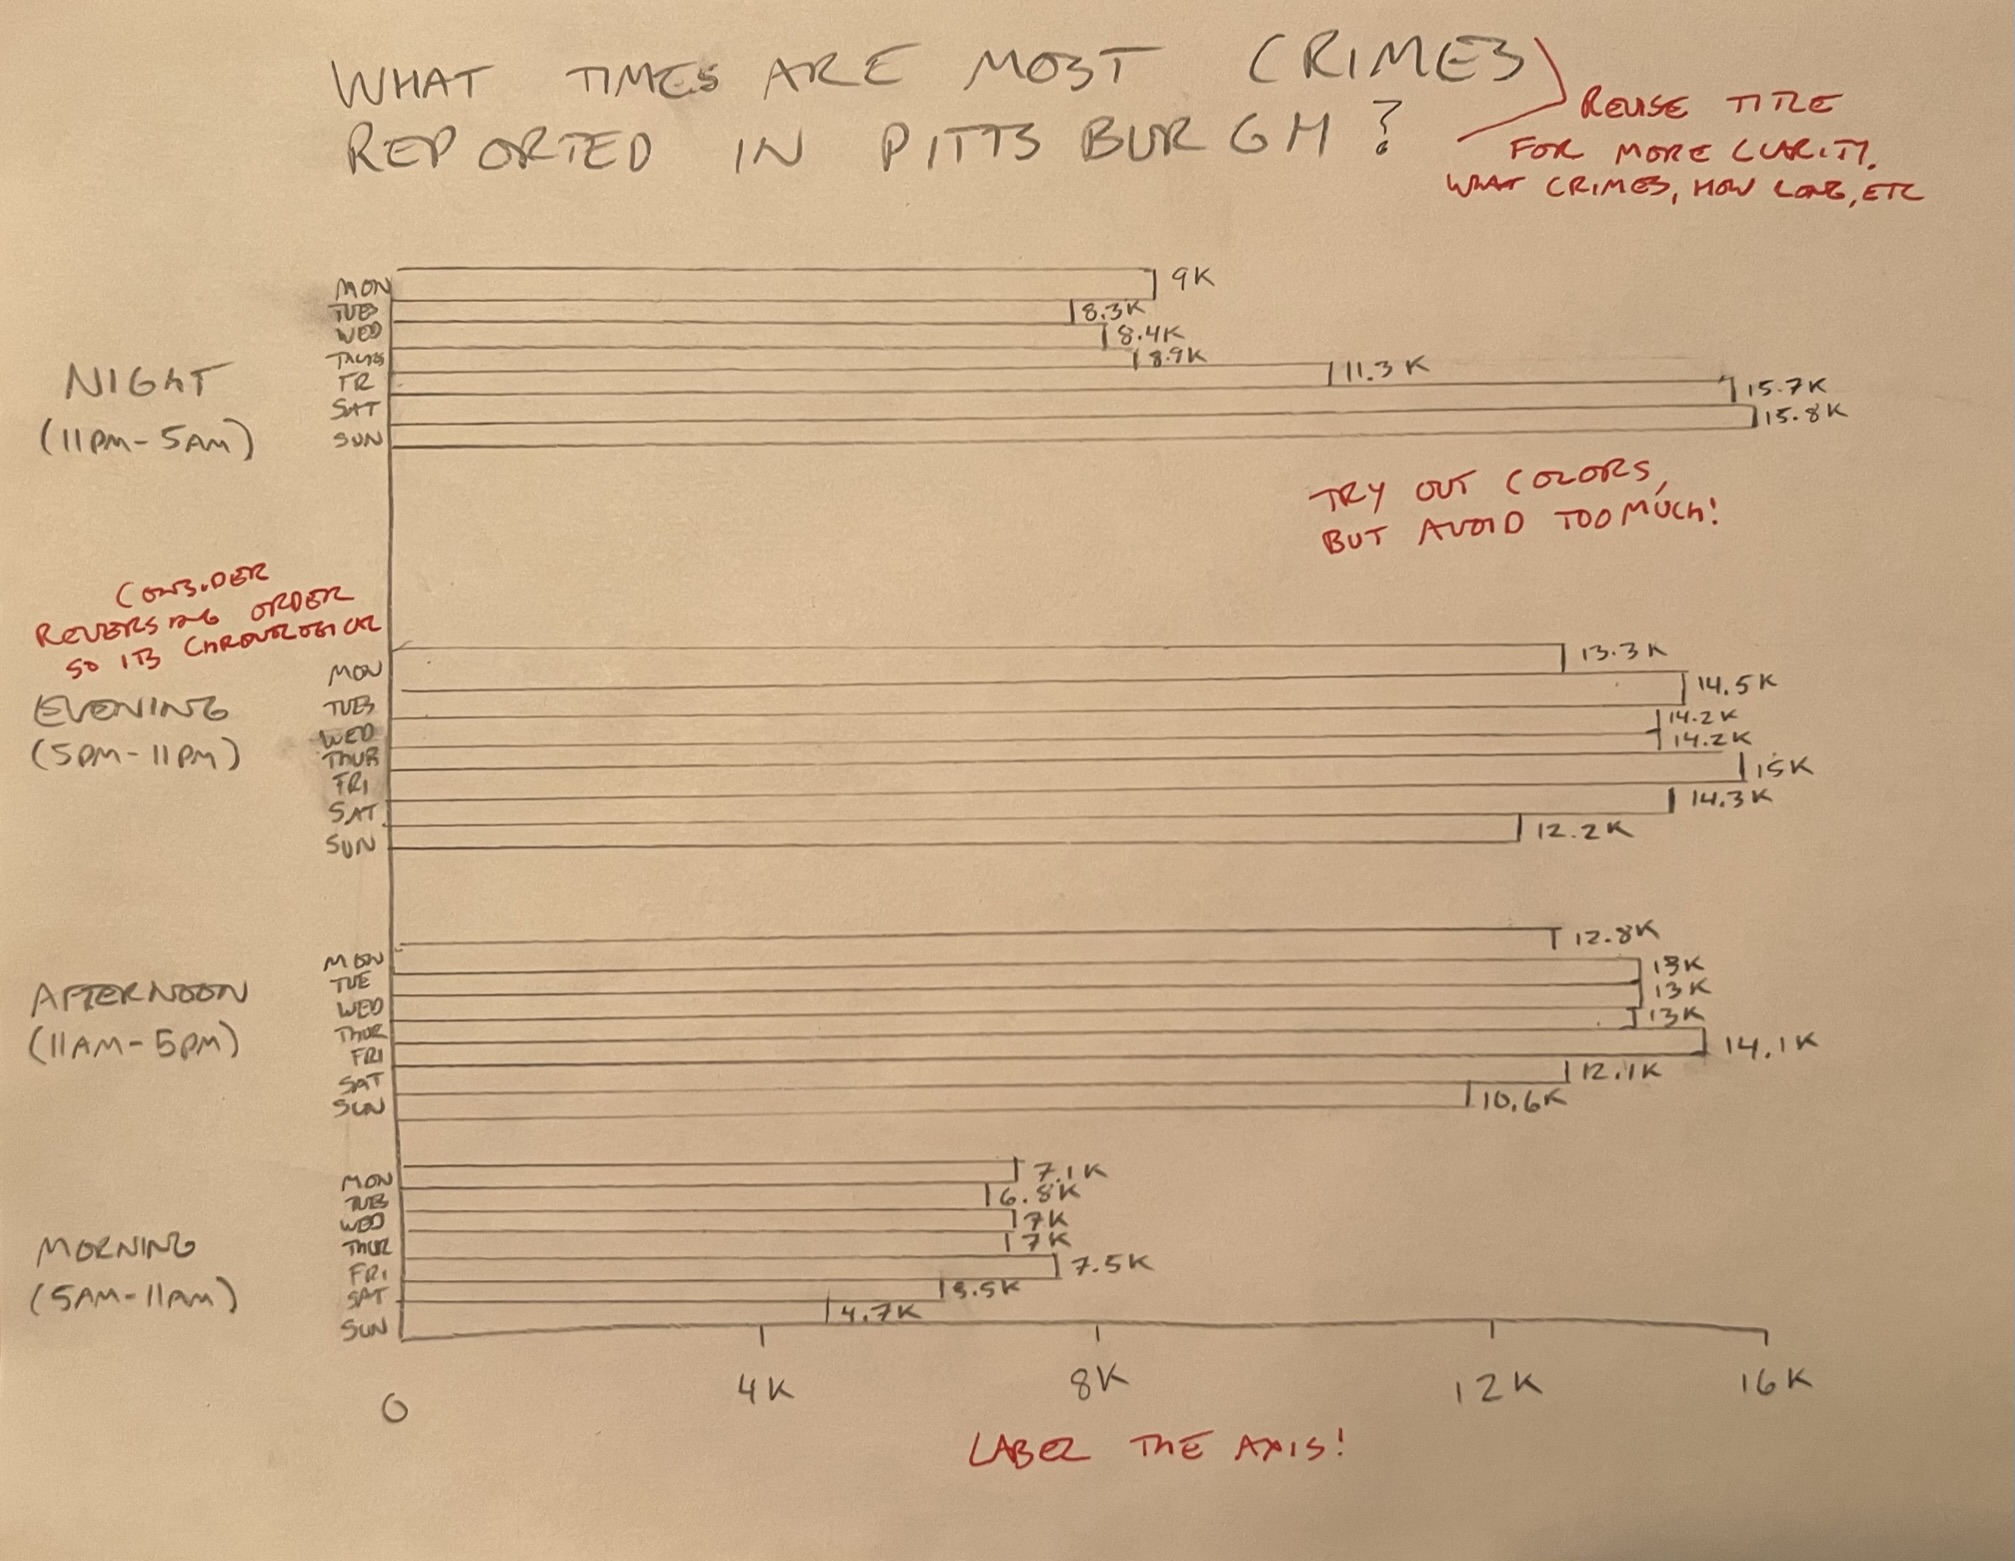 WHAT TIMES ARE MOST CRIMES
REPORTED IN PITTSBURGH?
REVISE TITLE
FOR MORE CLARITY.
WHAT CRIMES, HOW LONG, ETC
NIGHT
(11PM-5AM)
MON 9K
TUES 8.3K
WED 8.4K
THURS 8.9K
FR 11.3K
SAT 15.7K
SUN 15.8K
TRY OUT COLORS,
BUT AVOID TOO MUCH!
CONSIDER
REVERSING ORDER
SO ITS CHRONOLOGICAL
EVENING
(5PM-11PM)
MON 13.3K
TUES 14.5K
WED 14.2K
THUR 14.2K
FRI 15K
SAT 14.3K
SUN 12.2K
AFTERNOON
(11AM-5PM)
MON 12.8K
TUE 13K
WED 13K
THUR 13K
FRI 14.1K
SAT 12.1K
SUN 10.6K
MORNING
(5AM-11AM)
MON 7.1K
TUES 6.8K
WED 7K
THUR 7K
FRI 7.5K
SAT 5.5K
SUN 4.7K
0 4K 8K 12K 16K
LABEL THE AXIS!